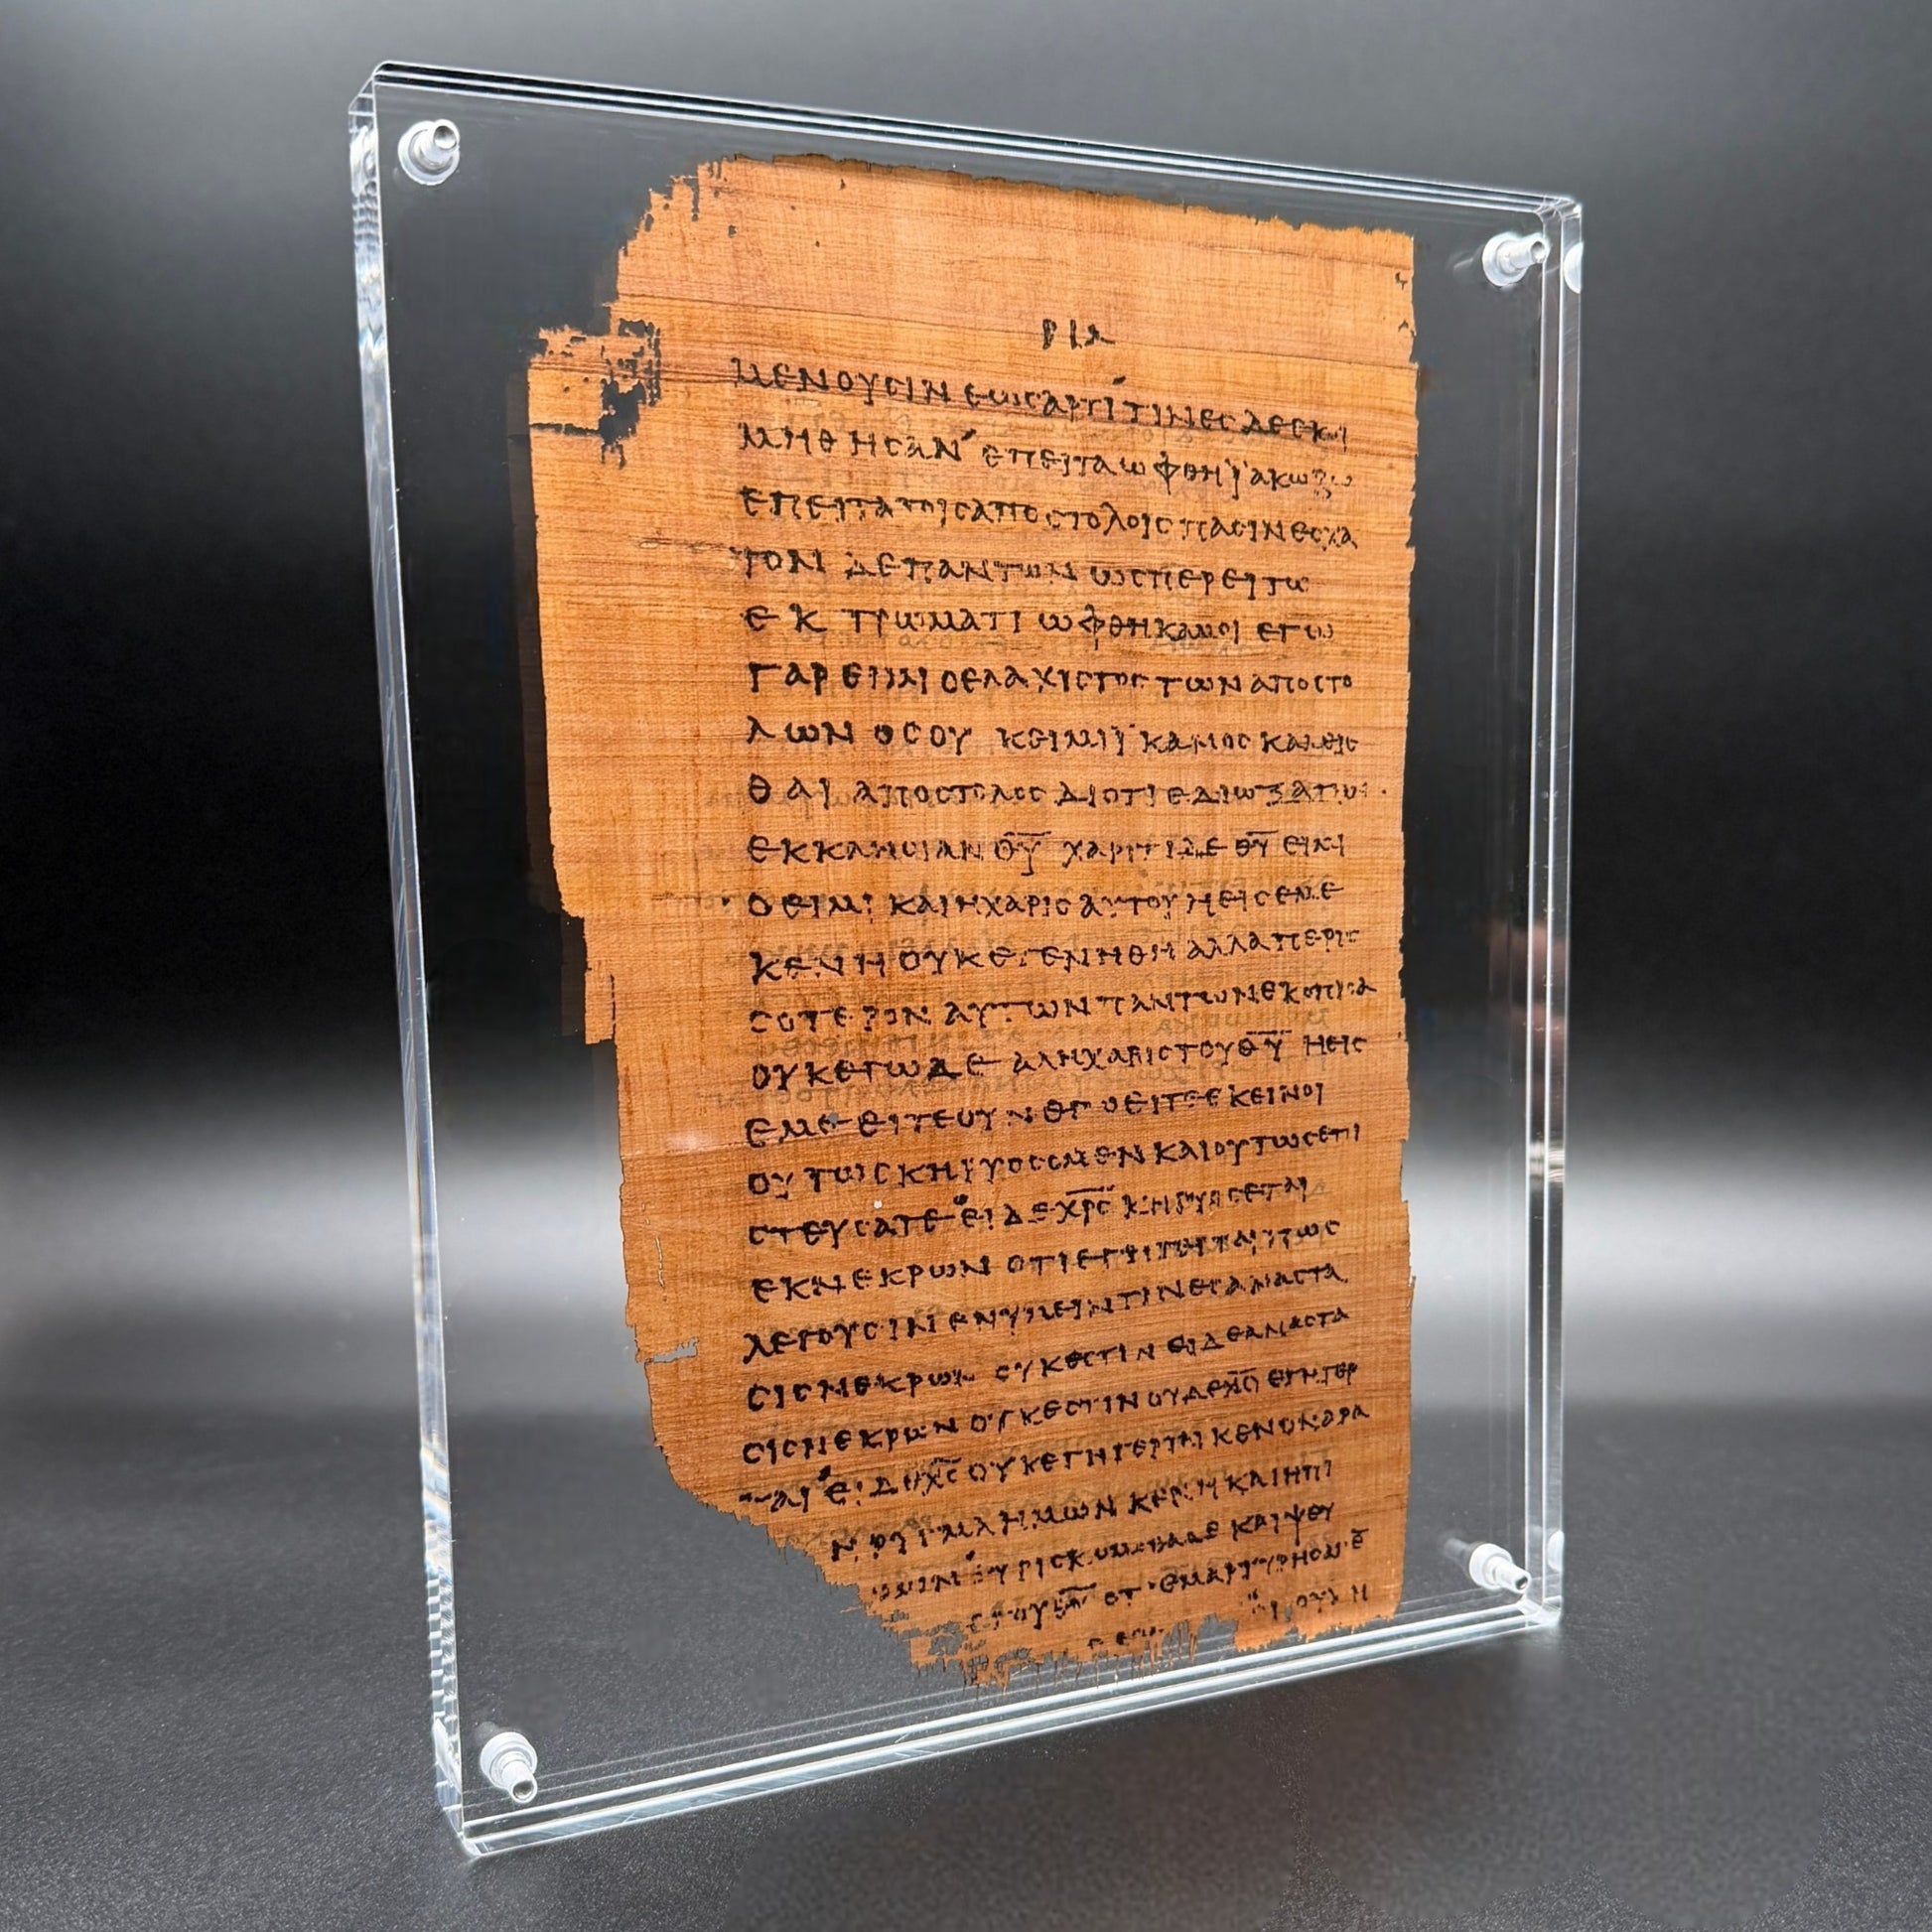 ΜΕΝΟΥϹΙΝ ΕΩϹ ΑΡΤΙ ΤΙΝΕϹ ΔΕ ΕΚΟΙ
ΜΗΘΗϹΑΝ ΕΠΕΙΤΑ ΩΦΘΗ ΪΑΚΩΒΩ
ΕΠΕΙΤΑ ΤΟΙϹ ΑΠΟϹΤΟΛΟΙϹ ΠΑϹΙΝ ΕϹΧΑ
ΤΟΝ ΔΕ ΠΑΝΤΩΝ ΩϹΠΕΡΕΙ ΤΩ
ΕΚΤΡΩΜΑΤΙ ΩΦΘΗ ΚΑΜΟΙ ΕΓΩ
ΓΑΡ ΕΙΜΙ Ο ΕΛΑΧΙϹΤΟϹ ΤΩΝ ΑΠΟϹΤΟ
ΛΩΝ ΟϹ ΟΥΚ ΕΙΜΙ ΪΚΑΝΟϹ ΚΑΛΕΙϹ
ΘΑΙ ΑΠΟϹΤΟΛΟϹ ΔΙΟΤΙ ΕΔΙΩΞΑ ΤΗΝ
ΕΚΚΛΗϹΙΑΝ Θ̅Υ̅ ΧΑΡΙΤΙ ΔΕ Θ̅Υ̅ ΕΙΜΙ
Ο ΕΙΜΙ ΚΑΙ Η ΧΑΡΙϹ ΑΥΤΟΥ Η ΕΙϹ ΕΜΕ
ΚΕΝΗ ΟΥΚ ΕΓΕΝΗΘΗ ΑΛΛΑ ΠΕΡΙϹ
ϹΟΤΕΡΟΝ ΑΥΤΩΝ ΠΑΝΤΩΝ ΕΚΟΠΙΑϹΑ
ΟΥΚ ΕΓΩ ΔΕ ΑΛΛ Η ΧΑΡΙϹ ΤΟΥ Θ̅Υ̅ Η ΕΙϹ
ΕΜΕ ΕΙΤΕ ΟΥΝ ΕΓΩ ΕΙΤΕ ΕΚΕΙΝΟΙ
ΟΥΤΩϹ ΚΗΡΥϹϹΟΜΕΝ ΚΑΙ ΟΥΤΩϹ ΕΠΙ
ϹΤΕΥϹΑΤΕ ΕΙ ΔΕ Χ̅Ρ̅Ϲ̅ ΚΗΡΥϹϹΕΤΑΙ
ΕΚ ΝΕΚΡΩΝ ΟΤΙ ΕΓΗΓΕΡΤΑΙ ΠΩϹ
ΛΕΓΟΥϹΙΝ ΕΝ ΥΜΕΙΝ ΤΙΝΕϹ ΑΝΑϹΤΑ
ϹΙϹ ΝΕΚΡΩΝ ΟΥΚ ΕϹΤΙΝ ΕΙ ΔΕ ΑΝΑϹΤΑ
ϹΙϹ ΝΕΚΡΩΝ ΟΥΚ ΕϹΤΙΝ ΟΥΔΕ Χ̅Ϲ̅ ΕΓΗΓΕΡ
ΤΑΙ ΕΙ ΔΕ Χ̅Ϲ̅ ΟΥΚ ΕΓΗΓΕΡΤΑΙ ΚΕΝΟΝ ΑΡΑ
ΚΕΝΗ ΚΑΙ Η ΠΙ
ΚΑΙ ΨΕΥ